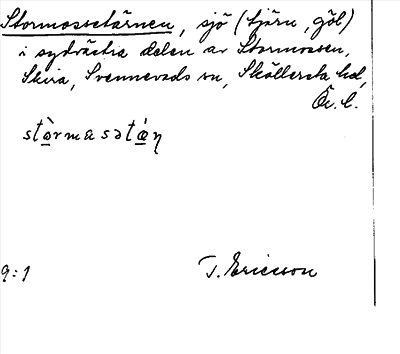 Stormossetärnen, sjö (tjärn, göl)
i sydvästra delen av Stormossen,
Skira, Svennevads sn, Sköllersta hd,
Ör. l.
9:1 T. Ericsson